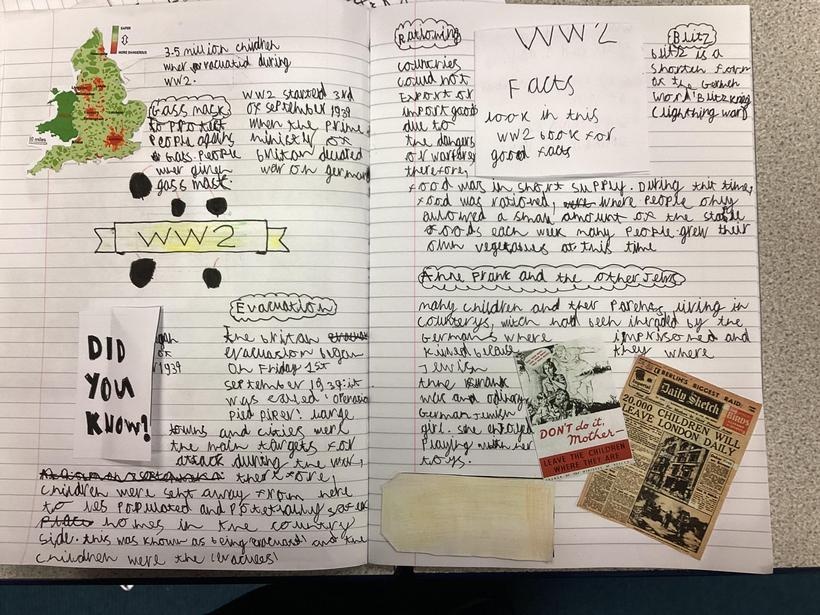 SAFER
MORE DANGEROUS
3.5 million children
wher evacuatid during
WW2.
Gass mask
to protect
people agains
Gas. People
wher given
gass mask
WW2 started 3rd
of september 1939
when the prime
minister of
britan declated
war on german
WW2
DID
YOU
KNOW?
1939
Evacuation
the british
evacuation began
on Friday 1st
september 1939. it
was called 'operation
pied piper'. large
towns and cities were
the main targets for
attack during the war,
therefore,
children were sent away from here
to les populated and potetially safer
homes in the country
side. this was known as being 'evacuated' and the
children were the 'evacuees'
Rationing
countries
could not
Export or
import goods
due to
the dangers
of warfare,
therefore,
food was in short supply. During this time,
food was rationed, where people only
allowed a small amount of the staple
foods each week many people grew their
own vegetables at this time
WW2
Facts
look in this
WW2 book for
good facts
Blitz
blitz is a
shorten form
of the German
word 'Blitzkrieg
(lightning war)
Anne Frank and the other Jews
many children and their Parents, living in
countrys, witch had been invaded by the
Germans where imprisoned and
killed because they where
Jewish
Anne Frank
was and odinary
German Jewish
girl. she enjoyed
playing with her
toys.
DON'T do it,
Mother—
LEAVE THE CHILDREN
WHERE THEY ARE
BERLIN'S BIGGEST RAID
Daily Sketch
20,000 CHILDREN WILL
LEAVE LONDON DAILY